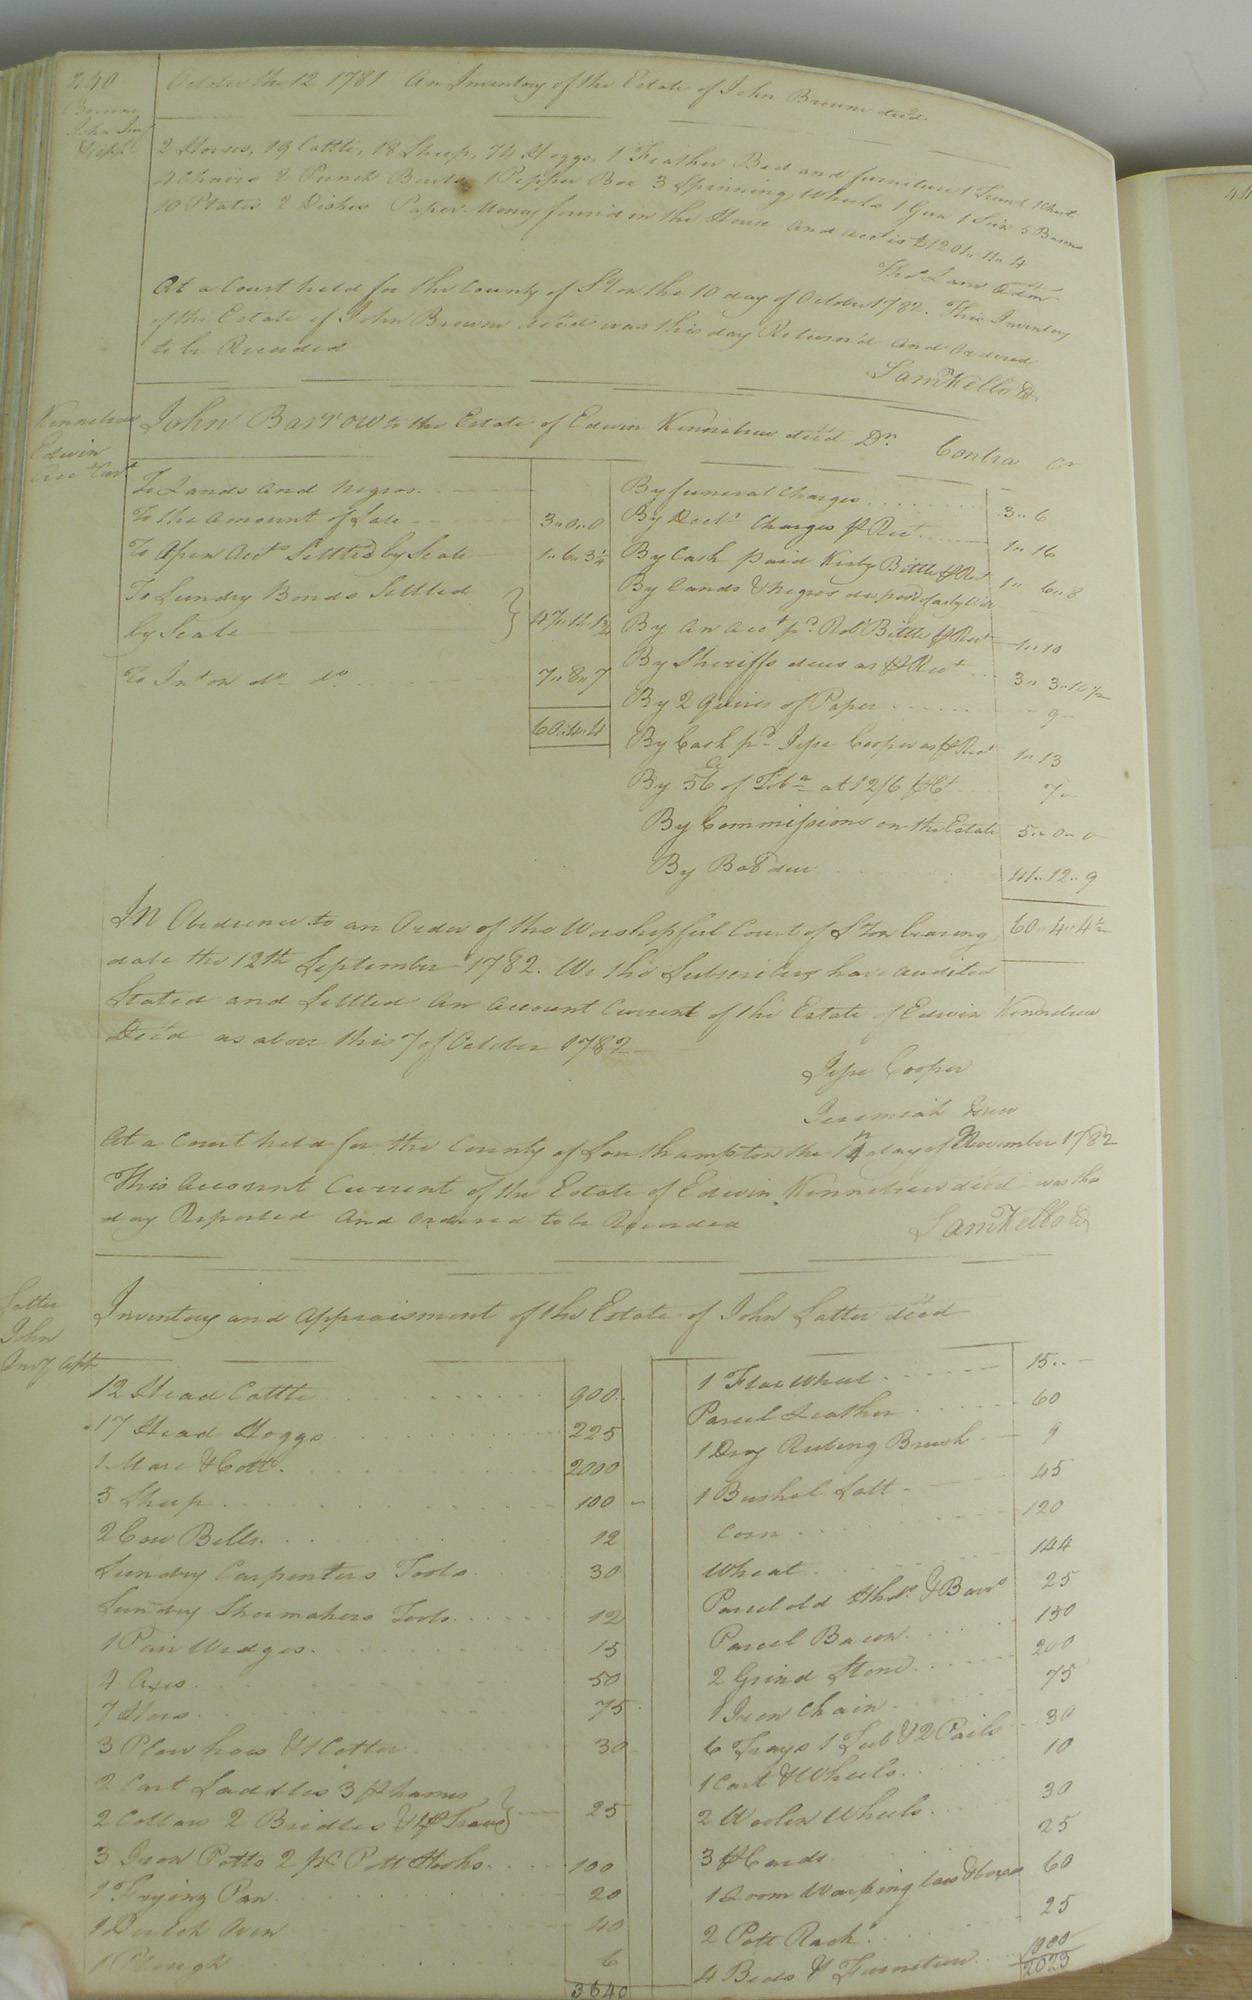 240
October the 12 1781 An Inventory of the Estate of John Brown dec'd
Brown
John Inv'y
2 Horses, 19 Cattle, 18 Sheep, 74 Hoggs, 1 Feather Bed and furniture 1 Trunk 1 Chest
4 Chairs 2 Punch Bowls 1 Pepper Box 3 Spinning Wheels 1 Gun 5 Basons
10 Plates 2 Dishes Paper Money found in the House and acc't is £1201,, 11,, 4
Tho's Lain Adm'r
At a Court held for the County of S'ton the 10 day of October 1782. This Inventory
of the Estate of John Brown dec'd was this day Return'd and ordered
to be Recorded
Sam'l Kello Ck
Kinnebrew
Edwin
Acc't Curr't
John Barrow to the Estate of Edwin Kinnebrew dec'd Dr. Contra Cr
To Lands and Negros
To the amount of Sale 3,, 0,, 0
To Open Acc'ts Settled by Scale 1,, 6,, 3 1/4
To Sundry Bonds Settled
by Scale 47,, 11,, 1 1/2
To Int on do do 7,, 8,, 7
60,, 4,, 4
By funeral Charges 3,, 6
By Doct's Charges p Rec't 1,, 16
By Cash paid Kirby Bittle p Rec't 1,, 6,, 8
By Lands & Negros disposed of
By an acc't p'd Rob't Bittle p Rec't 1,, 10
By Sheriffs dues as p Rec't 3,, 3,, 10 1/2
By 2 Quires of Paper 9
By Cash p'd Jesse Cooper as p Rec't 1,, 13
By 56 of Tob'o at 12/6 p C't 7
By Commissions on the Estate 5,, 0,, 0
By Ball due 41,, 12,, 9
60,, 4,, 4 1/2
In Obedience to an Order of the Worshipful Court of S'ton bearing
date the 12th September 1782. We the Subscribers have audited
Stated and Settled an account Current of the Estate of Edwin Kinnebrew
Dec'd as above this 7 of October 1782
Jesse Cooper
Jeremiah Drew
At a Court held for the County of Southampton the 14 day of November 1782
This Account Current of the Estate of Edwin Kinnebrew dec'd was this
day Reported and ordered to be Recorded
Sam'l Kello Ck
Latter
John
Inv'y Ap't
Inventory and Appraisment of the Estate of John Latter dec'd
12 Head Cattle 900
17 Head Hoggs 225
1 Mare & Colt 2000
5 Sheep 100
2 Cow Bells 12
Sundry Carpenters Tools 30
Sundry Shoemakers Tools 12
1 Pair Wedges 15
4 Axes 50
7 Hoes 75
3 Plow hoes & 1 Cotter 30
2 Cart Saddles 3 p hames
2 Collars 2 Bridles & 1 p Traces 25
3 Iron Potts 2 p'r Pott Hooks 100
1 Frying Pan 20
1 Dutch Oven 40
1 Plough 6
3640
1 Flax Wheel 15
Parcel Leather 60
1 Dry Rubing Brush 9
1 Bushel Salt 45
Corn 120
Wheat 144
Parcel old Hhds & Barr's 25
Parcel Bacon 150
2 Grind Stone 200
1 Iron Chain 75
6 Trays 1 Tub & 2 Pails 30
1 Cart & Wheels 10
2 Woolen Wheels 30
3 p Cards 25
1 Loom Warping bars & boxes 60
2 Pott Rack 25
4 Beds & Furniture 1000
2023